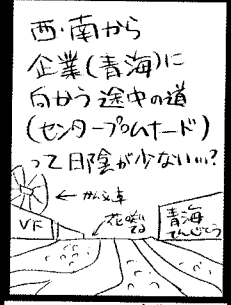 西・南から
企業(青海)に
向かう途中の道
(センタープロムナード)
って日陰が少ない…?
←かんらん車
VF
花咲いてる
青海
てんじとう